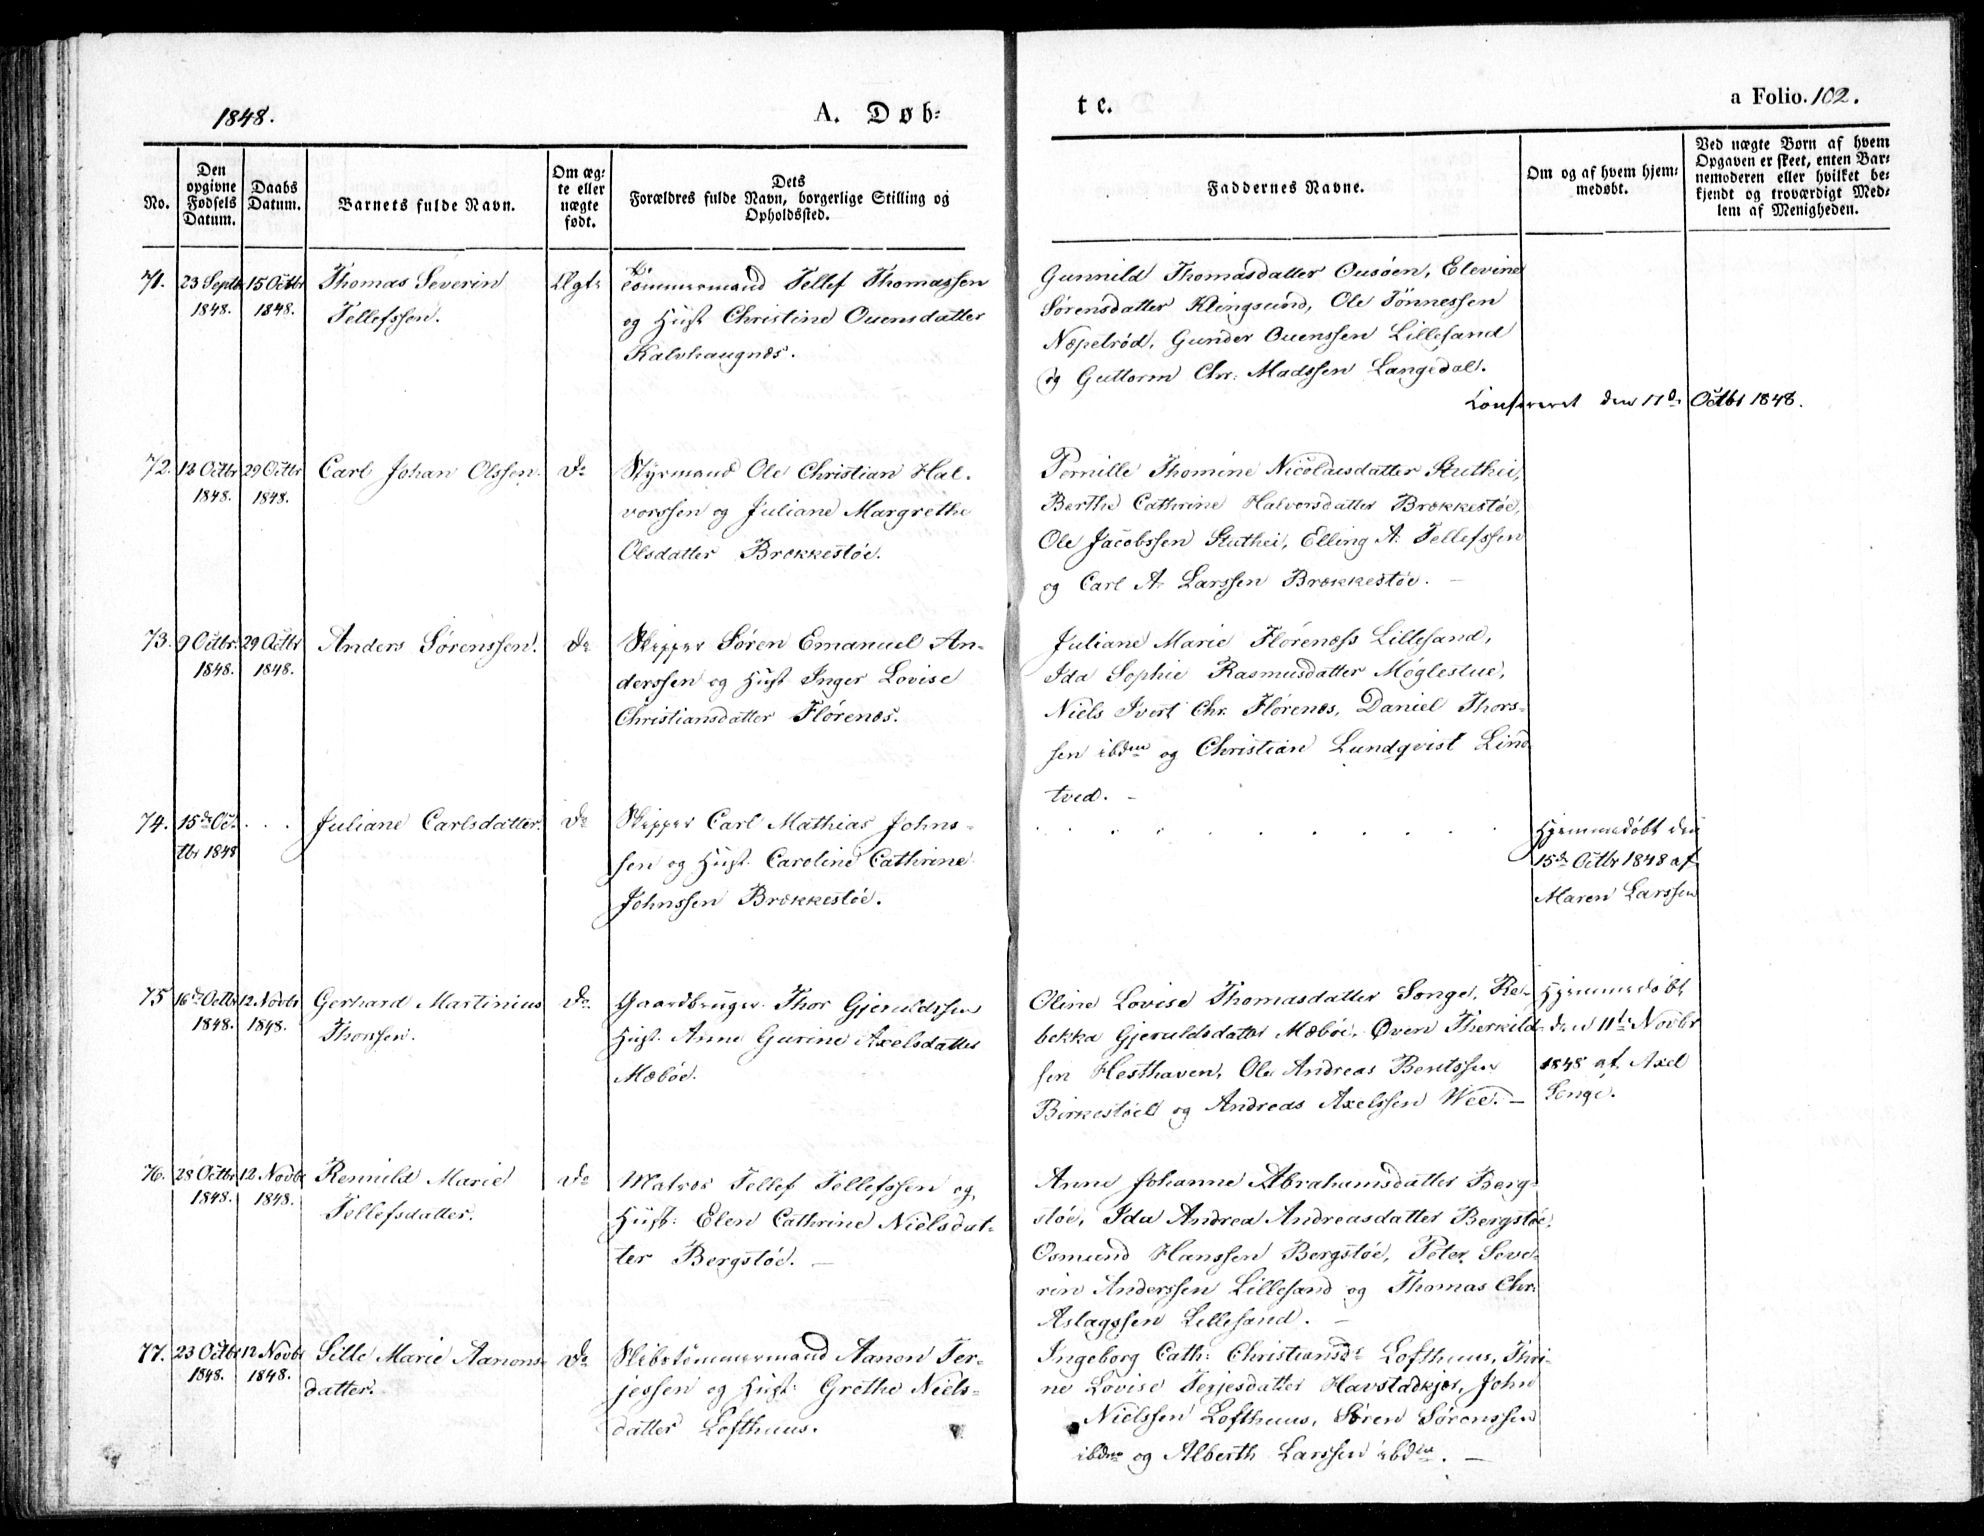 1848.
A. Døb-
te.
a Folio. 102.
No.
Den opgivne Fødsels Datum.
Daabs Datum.
Barnets fulde Navn.
Om ægte eller uægte født.
Dets Forældres fulde Navn, borgerlige Stilling og Opholdssted.
Faddernes Navne.
Om og af hvem hjemmedøbt.
Ved uægte Børn af hvem Opgaven er skeet, enten Barnemoderen eller hvilket bekjendt og troværdigt Medlem af Menigheden.
71.
23 Septb
1848.
15 Octbr
1848.
Thomas Severin
Tellefssen.
Ægte
Tømmermand Tellef Thomassen
og Hust Christine Ouensdatter
Kalvhaugnes.
Gunnild Thomasdatter Ousøen, Elevine
Sørensdatter Klingsund, Ole Tønnessen
Næpetrød, Gunder Ouenssen Lillesand
og Guttorm Chr: Madssen Langedal.
Confereret den 17de Octbr 1848.
72.
12 Octbr
1848.
29 Octbr
1848.
Carl Johan Olssen.
Do
Styrmand Ole Christian Hal-
vorssen og Juliane Margrethe
Olsdatter Brækkestøe.
Pernille Thomine Nicolaisdatter Stuthei,
Berthe Cathrine Halvorsdatter Brækkestøe,
Ole Jacobssen Stuthei, Elling A. Tellefssen
og Carl A. Larssen Brækkestøe. —
73.
9 Octbr.
1848.
29 Octbr
1848.
Anders Sørenssen.
Do
Skipper Søren Emanuel An-
derssen og Hust Inger Lovise
Christiansdatter Flørenæs.
Juliane Marie Flørenæss Lillesand,
Ida Sophie Rasmusdatter Møglestue,
Niels Ivert Chr. Flørenæs, Daniel Thors-
sen ibdm og Christian Lundqvist Lind
tved. —
74.
15de Oc-
tbr 1848
. . .
Juliane Carlsdatter.
Do
Skipper Carl Mathias Johns-
sen og Hust. Caroline Cathrine
Johnssen Brækkestøe.
. . . . . . . . . . .
Hjemmedøbt den
15de Octbr 1848 af
Maren Larssen
75
16de Octbr
1848.
12 Novbr
1848.
Gerhard Martinius
Thorssen.
Do
Gaardbruger Thor Gjeruldssen
Hust. Anne Gurine Axelsdatter
Mæbøe.
Oline Lovise Thomasdatter Songe, Re-
bekka Gjeruldsdatter Mæbøe, Oven Therkild-
sen Hesthaven, Ole Andreas Bentssen
Birkestøel og Andreas Axelssen Wee. —
Hjemmedøbt
den 11te Novbr
1848 af Axel
Songe.
76.
28 Octbr
1848.
12 Novbr
1848.
Rennild Marie
Tellefsdatter.
Do
Matros Tellef Tellefssen og
Hust: Elen Cathrine Nielsdat-
ter Bergstøe. —
Anne Johanne Abrahamsdatter Berg-
støe, Ida Andrea Andreasdatter Bergstøe,
Osmund Hanssen Bergstøe, Peter Seve-
rin Anderssen Lillesand og Thomas Chr:
Aslagssen Lillesand. —
77.
23 Octbr
1848.
12 Novbr
1848.
Sille Marie Aanons-
datter.
Do
Skibstømmermand Aanon Ter-
jessen og Hust: Grethe Niels-
datter Lofthuus.
Ingeborg Cath: Christiansdr Lofthuus, Thri-
ne Lovise Terjesdatter Havstadkjær, John
Nielssen Lofthuus, Søren Sørenssen
ibdm og Alberth Larssen ibdm. —